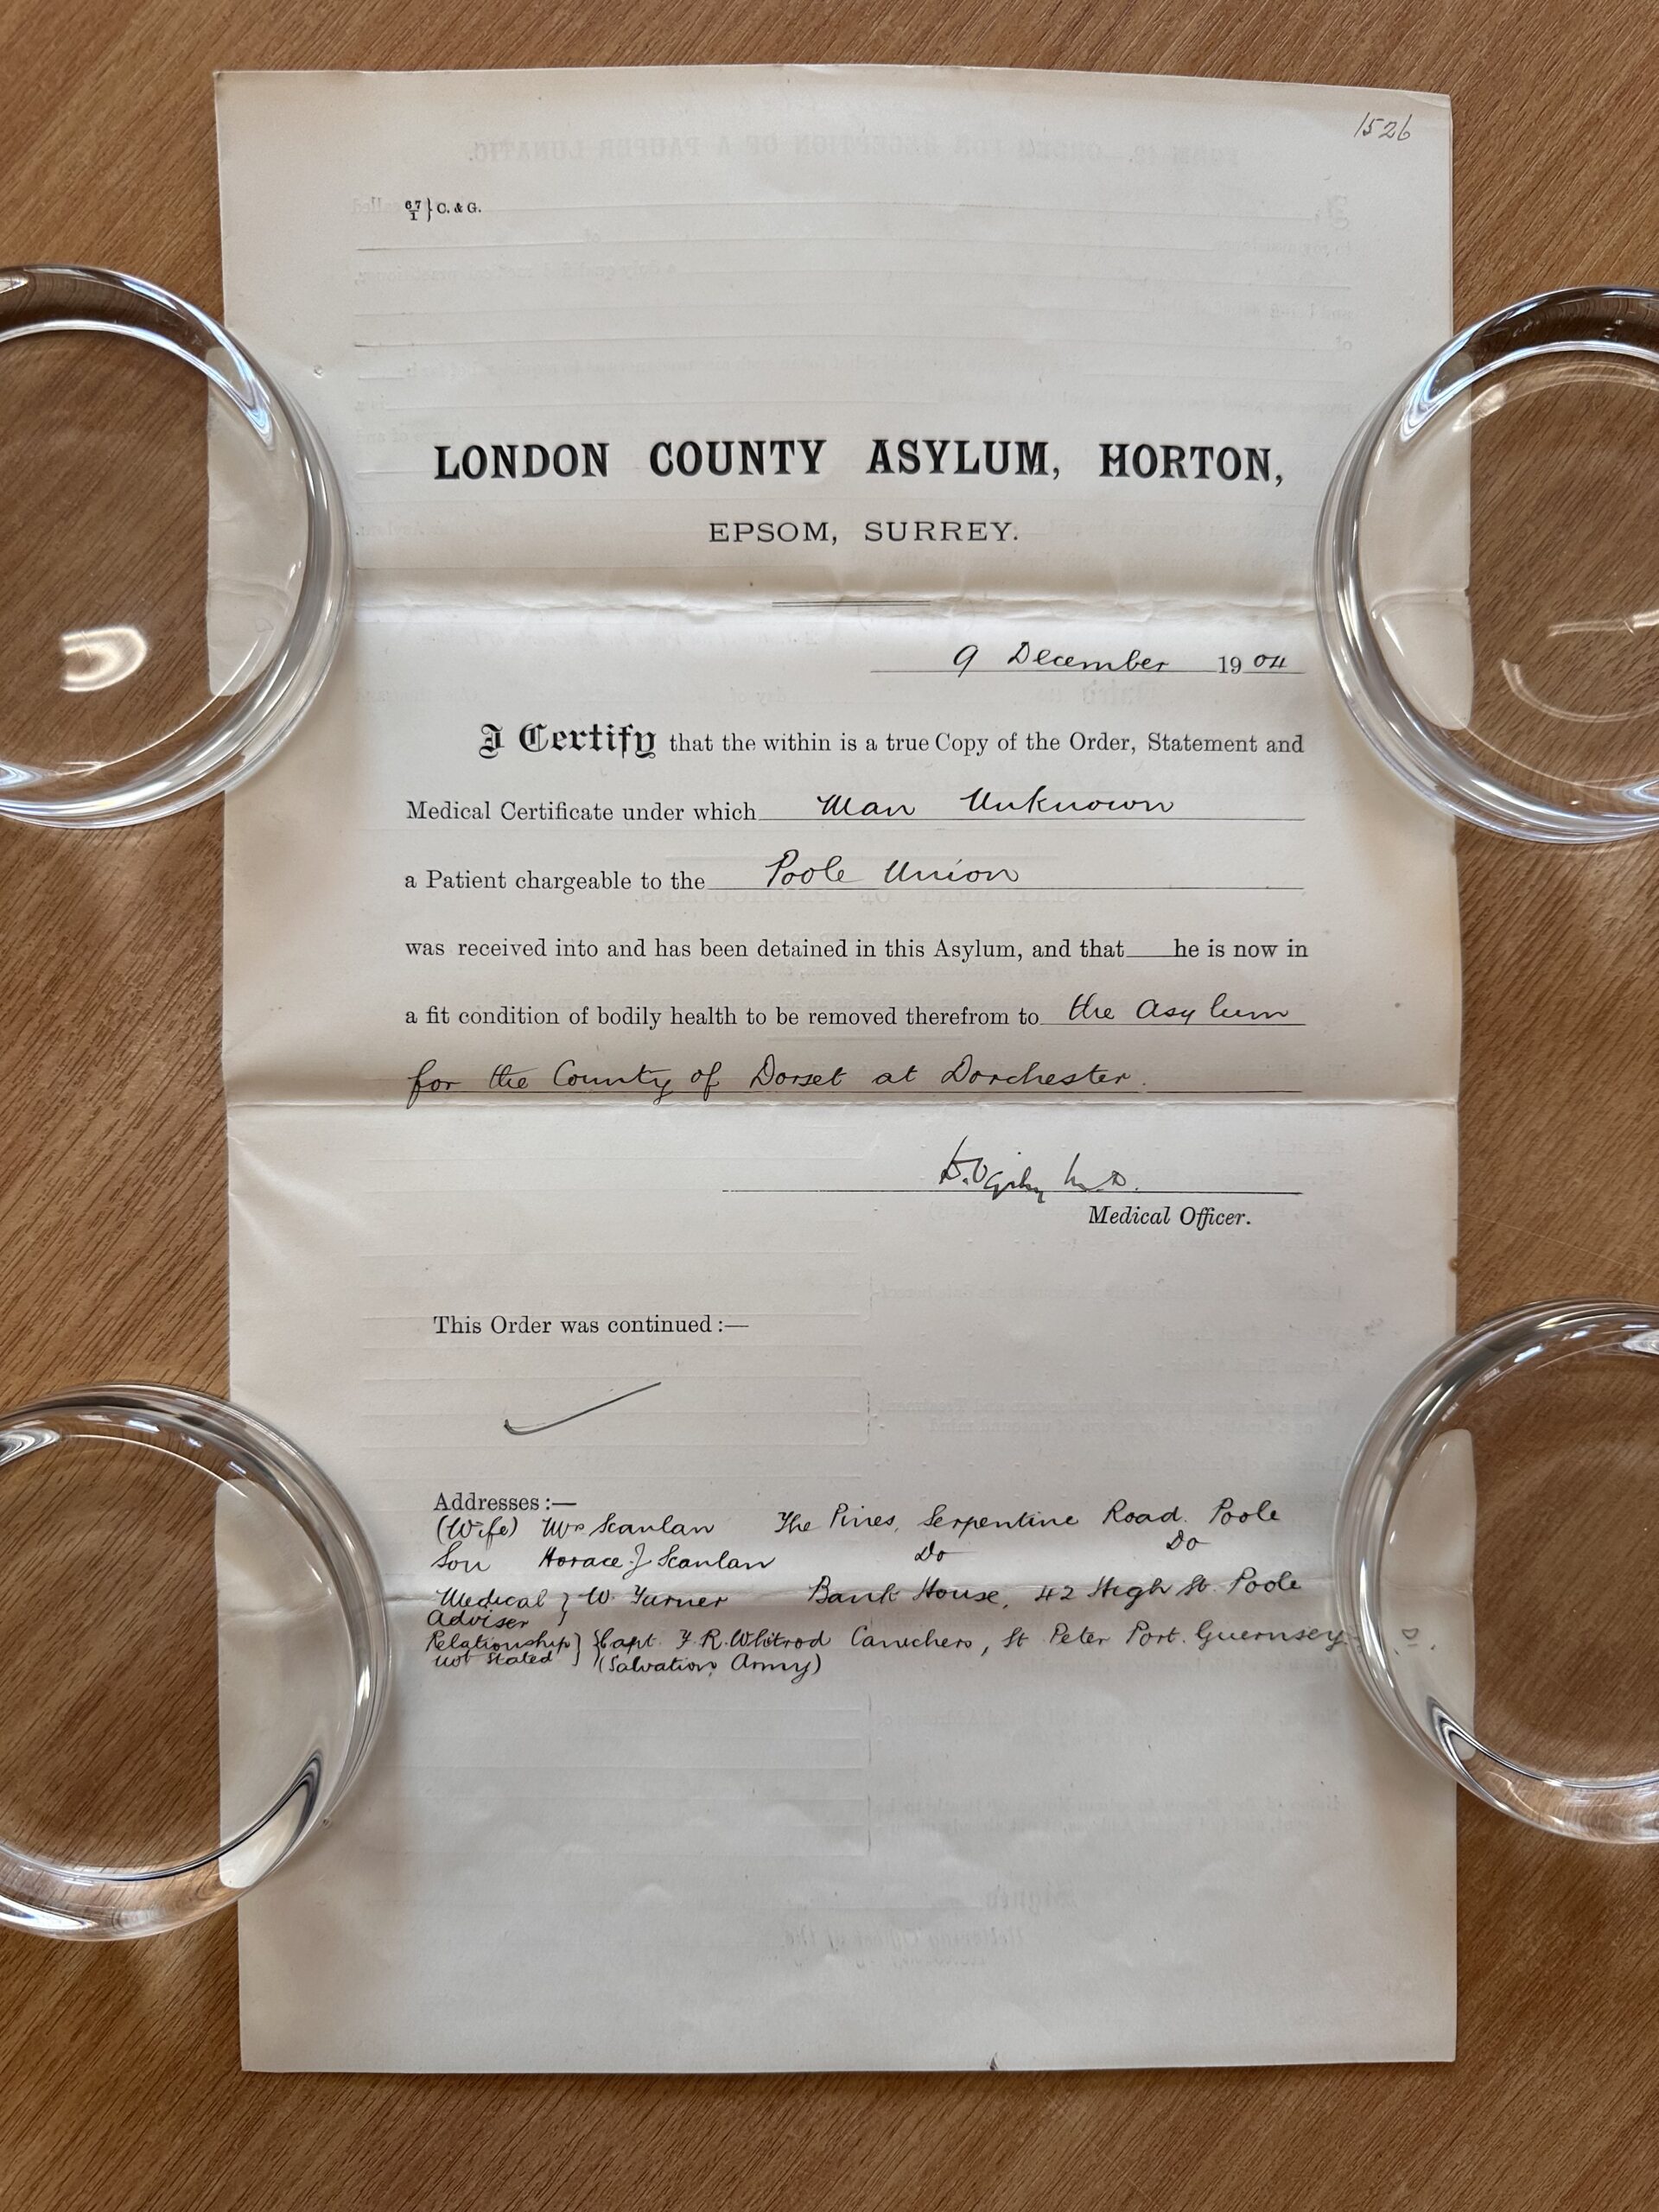 1526
67/1 } C. & G.
LONDON COUNTY ASYLUM, HORTON,
EPSOM, SURREY.
9 December 1904
I Certify that the within is a true Copy of the Order, Statement and
Medical Certificate under which Man Unknown
a Patient chargeable to the Poole Union
was received into and has been detained in this Asylum, and that he is now in
a fit condition of bodily health to be removed therefrom to the Asylum
for the County of Dorset at Dorchester.
M.D.
Medical Officer.
This Order was continued :—
Addresses :—
(Wife) Mrs Scanlan The Pines, Serpentine Road. Poole
Son Horace J Scanlan Do Do
Medical } W. Turner Bank House, 42 High St. Poole
Adviser
Relationship } { Capt. F. R. Whitrod Canichers, St Peter Port. Guernsey
not stated } (Salvation Army)